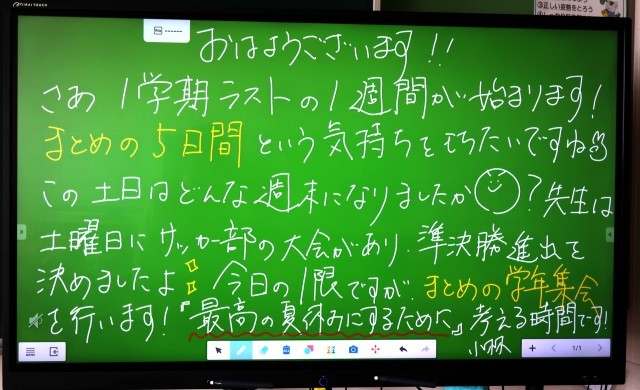 おはようございます!!
さあ1学期ラストの1週間が始まります!
まとめの5日間という気持ちをもちたいですね
この土日はどんな週末になりましたか?先生は
土曜日にサッカー部の大会があり、準決勝進出を
決めましたよ 今日の1限ですが、まとめの学年集会
を行います!『最高の夏休みにするために』考える時間です!
小林
1/1